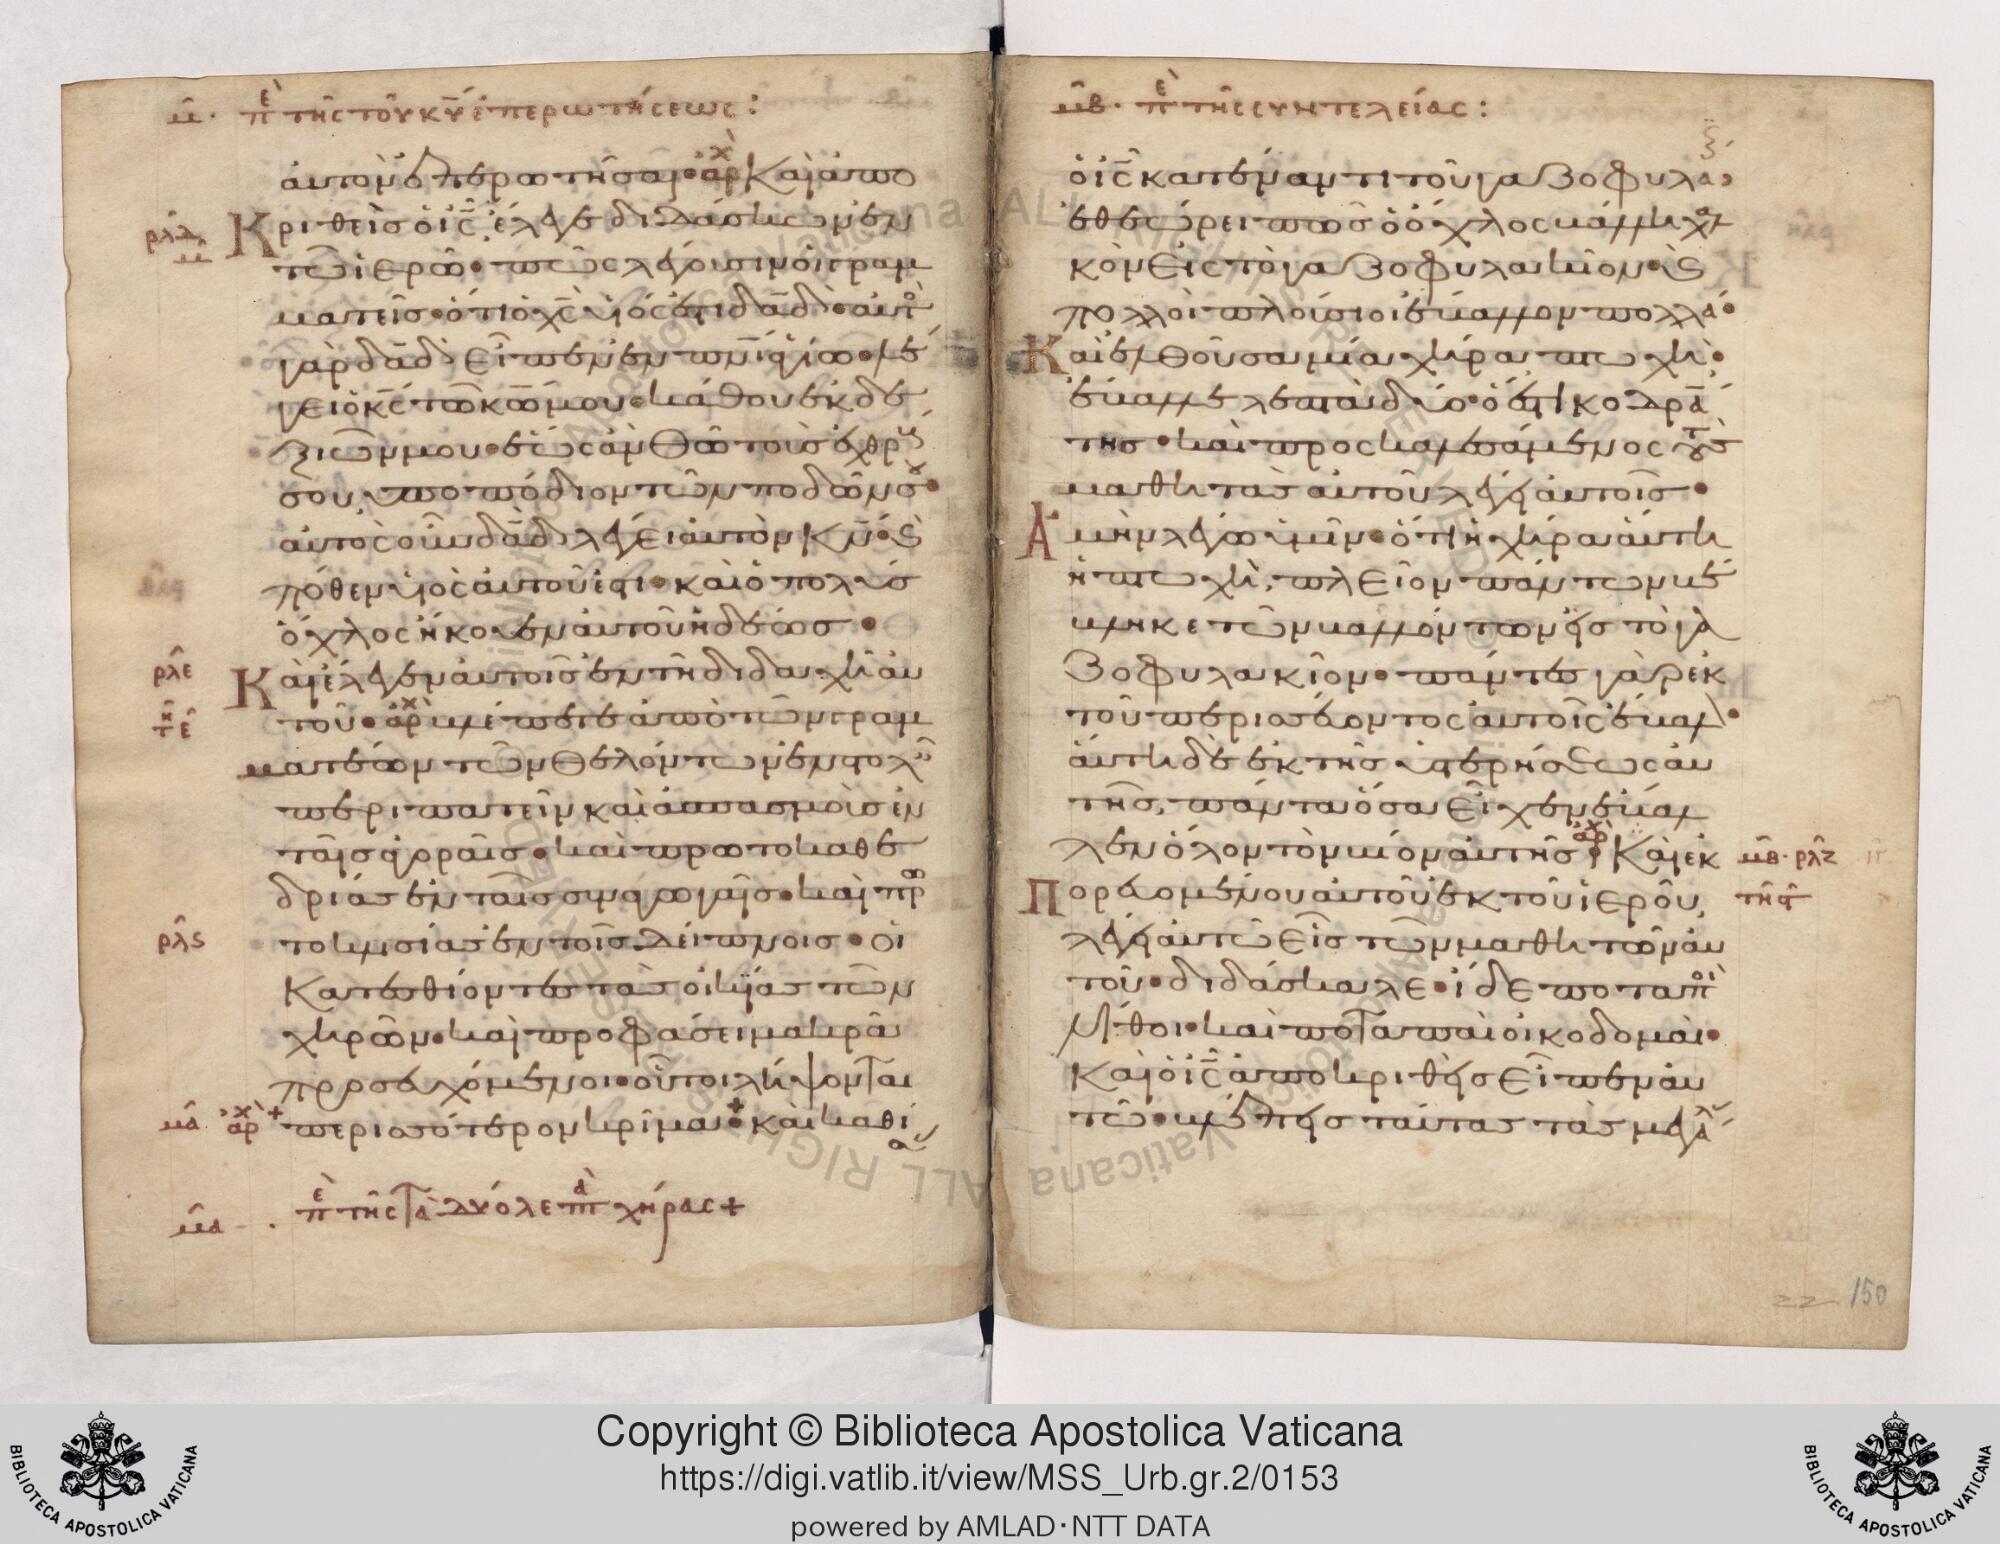 μ̅. πε τῆς τοῦ κ̅υ̅ ἐπερωτήσεως:
αὐτὸν ἐπερωτῆσαι· ἀρχ Καὶ ἀπο
ρλδ μ Κριθεὶς ὁ ι̅ς̅, ἔλεγε διδάσκων ἐν
τῶ ἱερῶ· πῶς λέγουσιν οἱ γραμ
ματεῖς· ὅτι ὁ χ̅ς̅ υἱός ἐστι δ̅α̅δ̅· αὐτὸ
γὰρ δ̅α̅δ̅ εἶπεν ἐν π̅ν̅ι̅ ἁγίω· λέ
γει ὁ κ̅ς̅ τῶ κ̅ω̅ μου· κάθου ἐκ δε
ξιῶν μου· ἕως ἂν θῶ τοὺς ἐχθρούς
σου, ὑποπόδιον τῶν ποδῶν σου·
αὐτὸς οὖν δ̅α̅δ̅ λέγει αὐτὸν κ̅ν̅· καὶ
πόθεν υἱὸς αὐτοῦ ἐστι· καὶ ὁ πολὺς
ὄχλος ἤκουεν αὐτοῦ ἡδέως·
ρλε Καὶ ἔλεγεν αὐτοῖς ἐν τῆ διδαχῆ αὐ
τοῦ· ἀρχ βλέπετε ἀπὸ τῶν γραμ
ματέων τῶν θελόντων ἐν στολαῖς
περιπατεῖν καὶ ἀσπασμοὺς ἐν
ταῖς ἀγοραῖς· καὶ πρωτοκαθε
δρίας ἐν ταῖς συναγωγαῖς· καὶ πρω
ρλς τοκλισίας ἐν τοῖς δείπνοις· οἱ
Κατεσθίοντες τὰς οἰκίας τῶν
χηρῶν· καὶ προφάσει μακρᾶ
προσευχόμενοι· οὗτοι λήψονται
μα ἀρχ + περισσότερον κρίμα· + καὶ καθί
σας
μα. πε τῆς τὰ δύο λεπτὰ χήρας +
μβ. πε τῆς συντελείας:
ὁ ι̅ς̅ κατέναντι τοῦ γαζοφυλακί
ἐθεώρει πῶς ὁ ὄχλος βάλλει χαλ
κὸν εἰς τὸ γαζοφυλάκιον· καὶ
πολλοὶ πλούσιοι ἔβαλλον πολλά·
Καὶ ἐλθοῦσα μία χήρα πτωχὴ,
ἔβαλλε λεπτὰ δύο· ὅ ἐστι κοδράν
της· καὶ προσκαλεσάμενος τοὺς
μαθητὰς αὐτοῦ λέγει αὐτοῖς·
Ἀμὴν λέγω ὑμῖν· ὅτι ἡ χήρα αὕτη
ἡ πτωχὴ, πλεῖον πάντων βέ
βληκε τῶν βαλλόντων εἰς τὸ γα
ζοφυλακίον· πάντες γὰρ ἐκ
τοῦ περισσεύοντος αὐτοῖς ἔβαλον·
αὕτη δὲ ἐκ τῆς ὑστερήσεως αὐ
τῆς, πάντα ὅσα εἶχεν ἔβαλ
λεν ὅλον τὸν βίον αὐτῆς· ἀρχ Καὶ ἐκ μβ· ρλζ
Πορευομένου αὐτοῦ ἐκ τοῦ ἱεροῦ,
λέγει αὐτῶ εἷς τῶν μαθητῶν αὐ
τοῦ· διδάσκαλε· ἴδε ποταποὶ
λίθοι· καὶ ποταπαὶ οἰκοδομαί·
Καὶ ὁ ι̅ς̅ ἀποκριθεὶς εἶπεν αὐ
τῶ· βλέπεις ταύτας τὰς μεγάλας
150
Copyright © Biblioteca Apostolica Vaticana
https://digi.vatlib.it/view/MSS_Urb.gr.2/0153
powered by AMLAD·NTT DATA
BIBLIOTECA APOSTOLICA VATICANA
BIBLIOTECA APOSTOLICA VATICANA